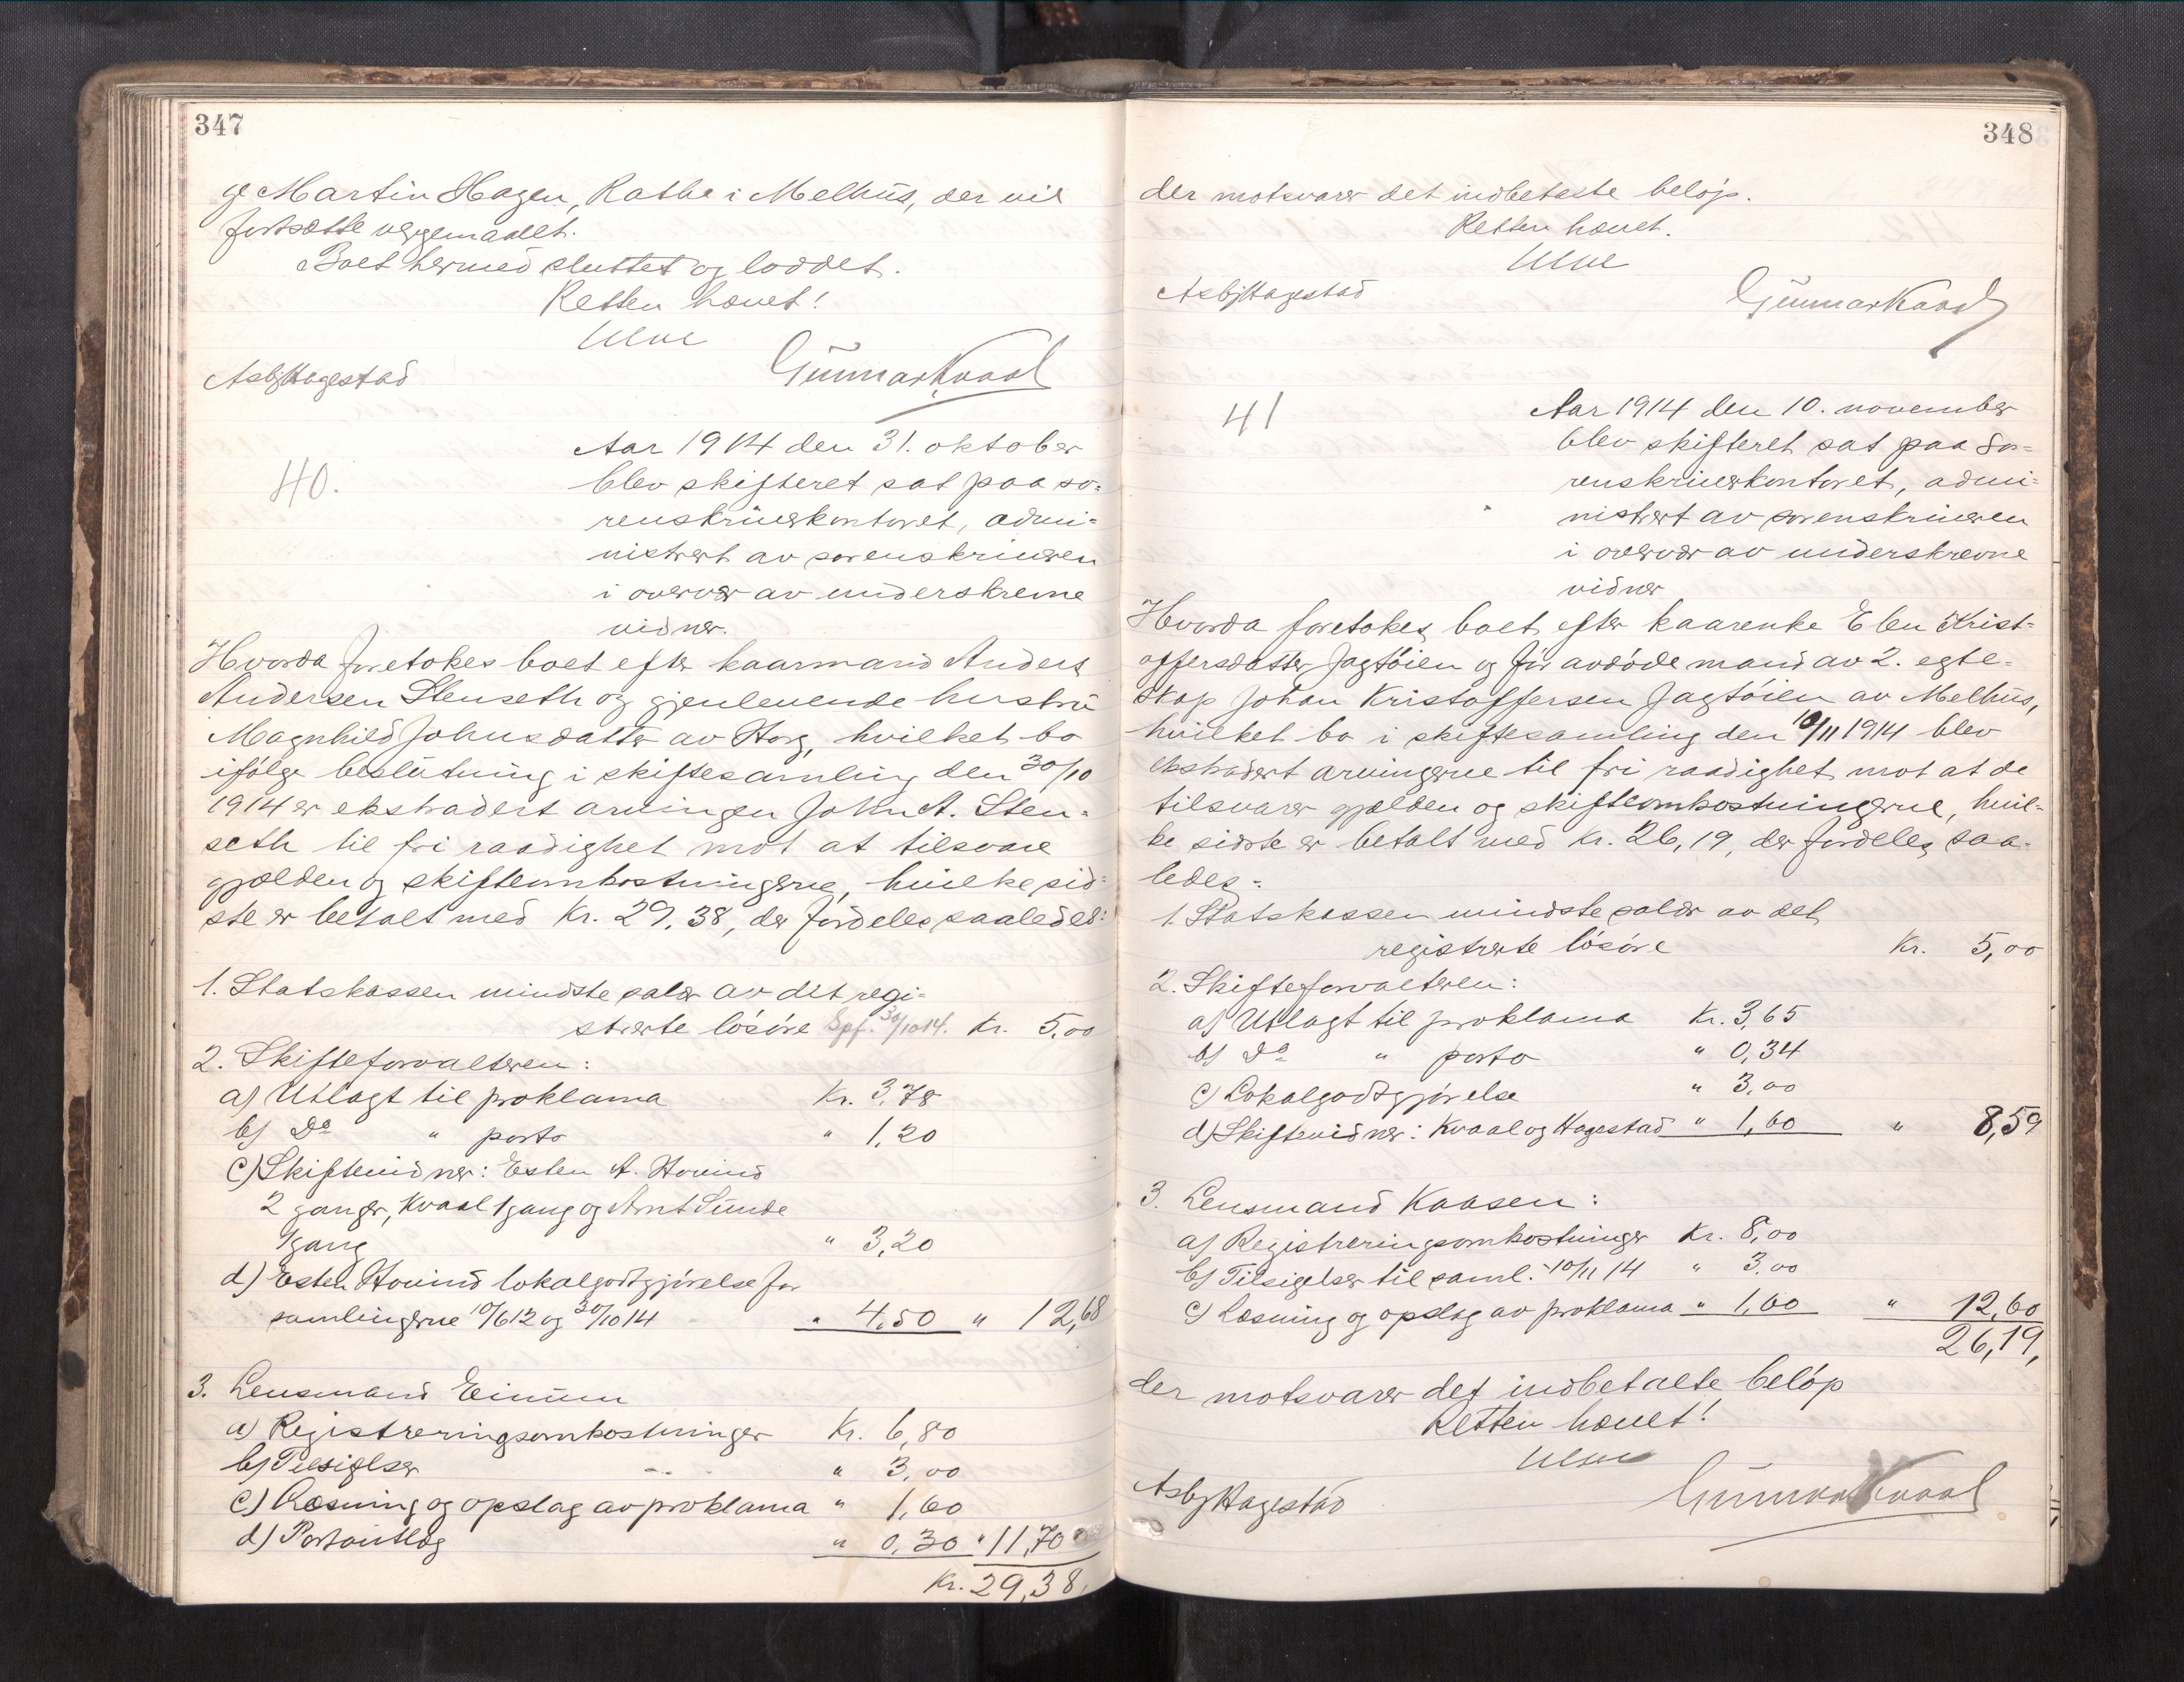 347
ge Martin Hagen, Rathe i Melhus, der vil
fortsætte vergemaalet.
Boet hermed sluttet og loddet.
Retten hævet!
Ulve
Asbj Hagestad
Gunnar Kvaal
40.
Aar 1914 den 31. oktober
blev skifteret sat paa so=
renskriverkontoret, admi=
nistrert av sorenskriveren
i overvær av underskrevne
vidner.
Hvorda foretokes boet efter kaarmand Anders
Andersen Stenseth og gjenlevende hustru
Magnhild Johnsdatter av Horg, hvilket bo
ifølge beslutning i skiftesamling den 30/10
1914 er ekstradert arvingen John A. Sten=
seth til fri raadighet mot at tilsvare
gjælden og skifteomkostningerne, hvilke sid=
ste er betalt med Kr. 29.38, der fordeles saaledes:
1. Statskassen mindste salær av det regi=
strerte løsøre Spf. 30/10 14. Kr. 5,00
2. Skifteforvalteren:
a) Utlagt til proklama Kr. 3,78
b) Do " porto " 1,20
c) Skiftevidner: Esten A. Hovind
2 ganger, Kvaal 1 gang og Arnt Sunde
1 gang " 3,20
d) Esten Hovind lokalgodtgjørelse for
samlingerne 10/6 12 og 30/10 14 " 4,50 " 12,68
3. Lensmand Einum
a) Registreringsomkostninger Kr. 6,80
b) Tilsigelser " 3,00
c) Læsning og opslag av proklama " 1,60
d) Portoutlæg " 0,30 " 11,70
Kr. 29,38,
348
der motsvarer det indbetalte beløp.
Retten hævet.
Ulve
Asbj Hagestad
Gunnar Kvaal
41
Aar 1914 den 10. november
blev skifteret sat paa so=
renskriverkontoret, admi=
nistrert av sorenskriveren
i overvær av underskrevne
vidner
Hvorda foretokes boet efter kaarenke Elen Krist=
offersdatter Jagtøien og før avdøde mand av 2. egte=
skap Johan Kristoffersen Jagtøien av Melhus,
hvilket bo i skiftesamling den 10/11 1914 blev
ekstradert arvingerne til fri raadighet mot at de
tilsvarer gjælden og skifteomkostningerne, hvil=
ke sidste er betalt med Kr. 26,19, der fordeles saa=
ledes:
1. Statskassen mindste salær av det
registrerte løsøre Kr. 5,00
2. Skifteforvalteren:
a) Utlagt til proklama Kr. 3,65
b) Do " porto " 0,34
c) Lokalgodtgjørelse " 3,00
d) Skiftevidner: Kvaal og Hagestad " 1,60 " 8,59
3. Lensmand Kaasen:
a) Registreringsomkostninger Kr. 8,00
b) Tilsigelser til saml. 10/11 14 " 3.00
c) Læsning og opslag av proklama " 1,60 " 12,60
26,19,
der motsvarer det indbetalte beløp
Retten hævet!
Ulve
Asbj Hagestad
Gunnar Kvaal